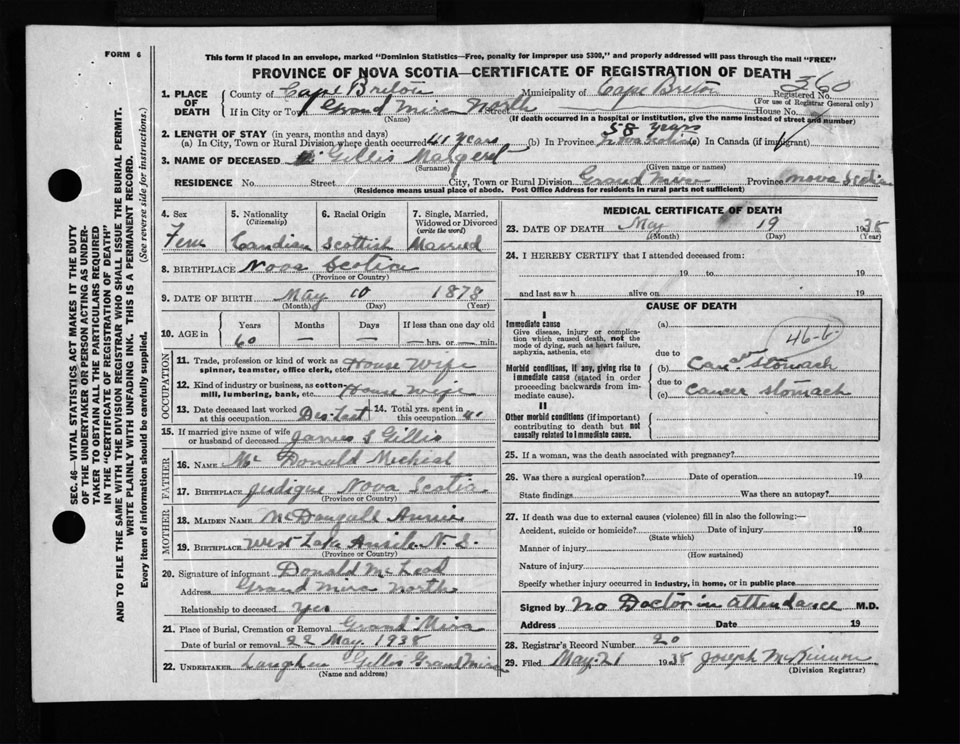 FORM 6
This form if placed in an envelope, marked "Dominion Statistics—Free, penalty for improper use $300," and properly addressed will pass through the mail "FREE"
PROVINCE OF NOVA SCOTIA—CERTIFICATE OF REGISTRATION OF DEATH
SEC. 46—VITAL STATISTICS ACT MAKES IT THE DUTY
OF THE UNDERTAKER OR PERSON ACTING AS UNDER-
TAKER TO OBTAIN ALL THE PARTICULARS REQUIRED
IN THE "CERTIFICATE OF REGISTRATION OF DEATH"
AND TO FILE THE SAME WITH THE DIVISION REGISTRAR WHO SHALL ISSUE THE BURIAL PERMIT.
WRITE PLAINLY WITH UNFADING INK. THIS IS A PERMANENT RECORD.
Every item of information should be carefully supplied. (See reverse side for instructions.)
1. PLACE OF DEATH
County of Cape Breton Municipality of Cape Breton Registered No. 360
(For use of Registrar General only)
If in City or Town Grand Mira North Street House No.
(Name) (If death occurred in a hospital or institution, give the name instead of street and number)
2. LENGTH OF STAY (in years, months and days)
(a) In City, Town or Rural Division where death occurred 41 years (b) In Province 58 years Nova Scotia (c) In Canada (if immigrant)
3. NAME OF DECEASED Gillis Margaret
(Surname) (Given name or names)
RESIDENCE No. Street City, Town or Rural Division Grand Mira Province Nova Scotia
(Residence means usual place of abode. Post Office Address for residents in rural parts not sufficient)
4. Sex
Fem
5. Nationality
(Citizenship)
Candian
6. Racial Origin
Scottish
7. Single, Married, Widowed or Divorced
(write the word)
Married
8. BIRTHPLACE Nova Scotia
(Province or Country)
9. DATE OF BIRTH May 10 1878
(Month) (Day) (Year)
10. AGE in
Years Months Days If less than one day
60 — — —hrs. or—min.
OCCUPATION
11. Trade, profession or kind of work as spinner, teamster, office clerk, etc. House Wife
12. Kind of industry or business, as cotton-mill, lumbering, bank, etc. House Wife
13. Date deceased last worked at this occupation Dec. Last 14. Total yrs. spent in this occupation 41
15. If married give name of wife or husband of deceased James S Gillis
FATHER
16. NAME Mc Donald
17. BIRTHPLACE Judique Nova Scotia
(Province or Country)
MOTHER
18. MAIDEN NAME McDougall Annie
19. BIRTHPLACE West Lake Ainsile N. S.
(Province or Country)
20. Signature of informant Donald McLeod
Address Grand Mira North
Relationship to deceased Yes
21. Place of Burial, Cremation or Removal Grand Mira
Date of burial or removal 22 May 1938
22. UNDERTAKER Gillis Grand Mira
(Name and address)
MEDICAL CERTIFICATE OF DEATH
23. DATE OF DEATH May 19 1938
(Month) (Day) (Year)
24. I HEREBY CERTIFY that I attended deceased from:
19 to 19
and last saw h alive on 19
CAUSE OF DEATH
I
Immediate cause
Give disease, injury or complication which caused death, not the mode of dying, such as heart failure, asphyxia, asthenia, etc
(a)
46-b
due to
Morbid conditions, if any, giving rise to immediate cause (stated in order proceeding backwards from immediate cause).
(b) stomach
due to
(c) cancer stomach
II
Other morbid conditions (if important) contributing to death but not causally related to immediate cause.
25. If a woman, was the death associated with pregnancy?
26. Was there a surgical operation? Date of operation 19
State findings Was there an autopsy?
27. If death was due to external causes (violence) fill in also the following:—
Accident, suicide or homicide? Date of injury 19
(State which)
Manner of injury
(How sustained)
Nature of injury
Specify whether injury occurred in industry, in home, or in public place
Signed by No Doctor in attendance M.D.
Address Date 19
28. Registrar's Record Number 20
29. Filed May 21 1938 Joseph McKinnon
(Division Registrar)